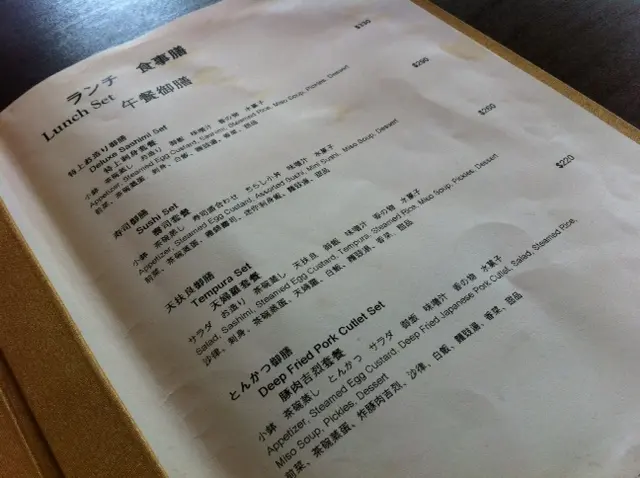 ランチ 食事膳
Lunch Set 午餐御膳
特上お造り御膳 $390
Deluxe Sashimi Set
特上刺身套餐
小鉢 茶碗蒸し お造り 御飯 味噌汁 香の物 水菓子
Appetizer, Steamed Egg Custard, Sashimi, Steamed Rice, Miso Soup, Pickles, Dessert
前菜、茶碗蒸蛋、刺身、白飯、麵豉湯、香菜、甜品
寿司御膳 $290
Sushi Set
壽司套餐
小鉢 茶碗蒸し 寿司盛合わせ ちらし小丼 味噌汁 水菓子
Appetizer, Steamed Egg Custard, Assorted Sushi, Mini Sushi, Miso Soup, Dessert
前菜、茶碗蒸蛋、雜錦壽司、迷你刺身飯、麵豉湯、甜品
天扶良御膳 $260
Tempura Set
天婦羅套餐
サラダ お造り 茶碗蒸し 天扶良 御飯 味噌汁 香の物 水菓子
Salad, Sashimi, Steamed Egg Custard, Tempura, Steamed Rice, Miso Soup, Pickles, Dessert
沙律、刺身、茶碗蒸蛋、天婦羅、白飯、麵豉湯、香菜、甜品
とんかつ御膳 $220
Deep Fried Pork Cutlet Set
豚肉吉烈套餐
小鉢 茶碗蒸し とんかつ サラダ 御飯 味噌汁 香の物 水菓子
Appetizer, Steamed Egg Custard, Deep Fried Japanese Pork Cutlet, Salad, Steamed Rice,
Miso Soup, Pickles, Dessert
前菜、茶碗蒸蛋、炸豚肉吉烈、沙律、白飯、麵豉湯、香菜、甜品